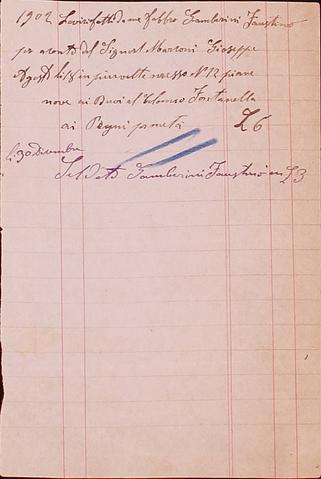 1902 Lavori fatti da me Fabbro Gamberini Faustino
per conto del Signor Marconi Giuseppe
Agosto li 18 in più volte messo N 12 piane
nove ai Buoi al Fontanella
ai Pegni p metà £6
li 30 Dicembre
Saldato Gamberini Faustino in £3